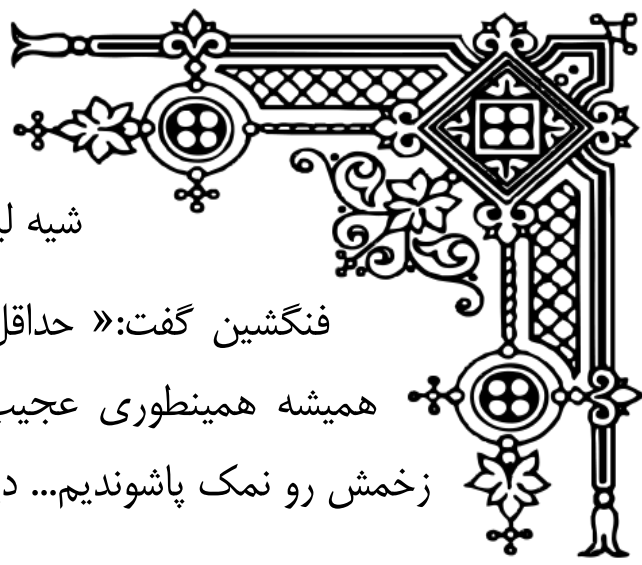 شیه
فنگشین گفت:« حداقل
همیشه همینطوری عجیب
زخمش رو نمک پاشوندیم...